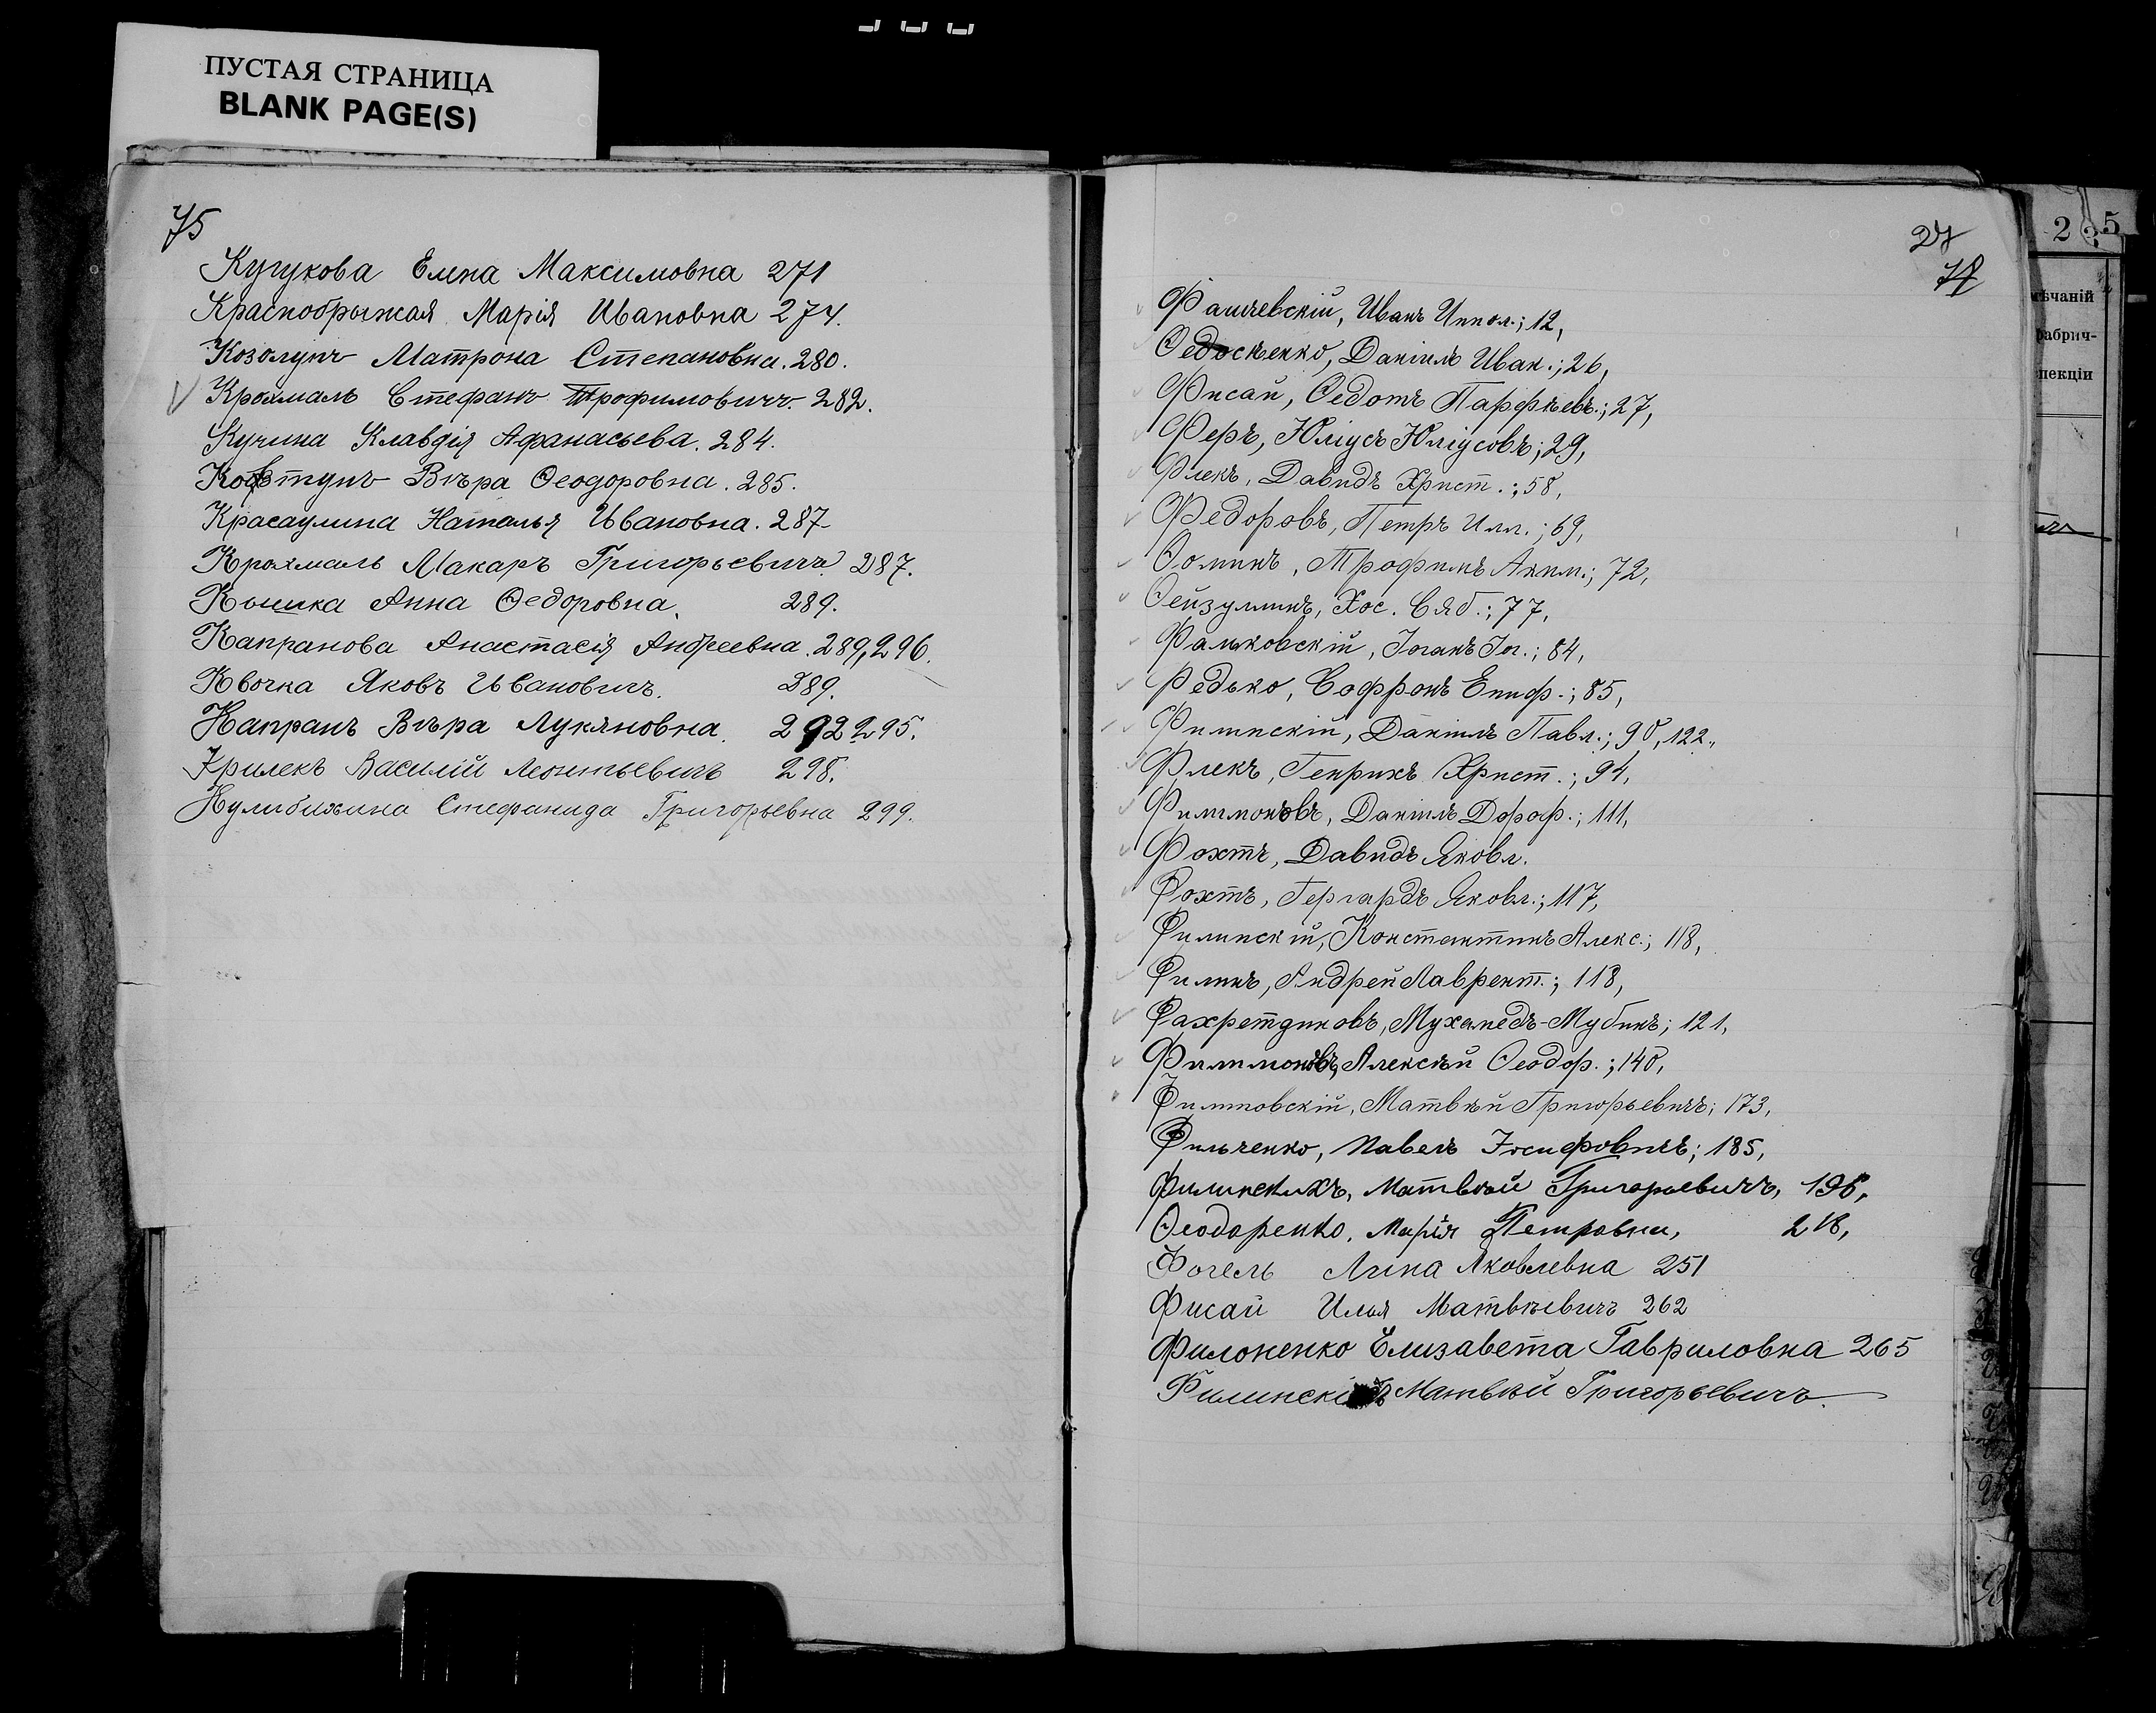 ПУСТАЯ СТРАНИЦА
BLANK PAGE(S)
75
Кугукова Елена Максимовна 271
Краснобрыжая Марія Ивановна 274.
Козолупъ Матрона Степановна. 280.
Крохмаль Стефанъ Трофимовичъ. 282.
Кучина Клавдія Афанасьева. 284.
Ковтунъ Вѣра Ѳеодоровна. 285.
Красаулина Наталья Ивановна. 287
Крохмаль Макаръ Григорьевичъ. 287.
Кышка Анна Ѳедоровна. 289.
Капранова Анастасія Андреевна. 289, 296.
Квочка Яковъ Ивановичъ. 289.
Капранъ Вѣра Лукяновна. 292 295.
Крилекъ Василій Леонтьевичъ 298.
Кулибихина Стефанида Григорьевна 299.
27
Фащевскій, Иванъ Иппол.; 12,
Ѳедосѣенко, Даніилъ Иван.; 26,
Фисай, Ѳедотъ Парфѣевъ.; 27,
Феръ, Юліусъ Юліусовъ; 29,
Флекъ, Давидъ Христ.; 58,
Федоровъ, Петръ Илл.; 69,
Ѳоминъ, Трофимъ Аким.; 72,
Ѳейзуллинъ, Хос. Сяб.; 77,
Фальковскій, Іоганъ Іог.; 84,
Редько, Софронъ Епиф.; 85,
Филинскій, Даніилъ Павл.; 90, 122,
Флекъ, Генрихъ Христ.; 94,
Филимоновъ, Даніилъ Дороф.; 111,
Фохтъ, Давидъ Яковл.
Фохтъ, Гергардъ Яковл.; 117,
Филинскій, Константинъ Алекс.; 118,
Филинъ, Андрей Лаврент.; 118,
Фахретдиновъ, Мухамедъ-Мубинъ; 121,
Филимоновъ, Алексѣй Ѳеодор.; 140,
Филиповскій, Матвѣй Григорьевичъ; 173,
Фильченко, Павелъ Іосифовичъ; 185,
Филинскихъ, Матвѣй Григорьевичъ, 198,
Ѳеодоренко, Марія Петровна, 218,
Фогель Анна Яковлевна 251
Фисай Илья Матвѣевичъ 262
Филоненко Елизавета Гавриловна 265
Филинскі Матвѣй Григорьевичъ.
2 5
мѣчаній
фабрич-
пекціи